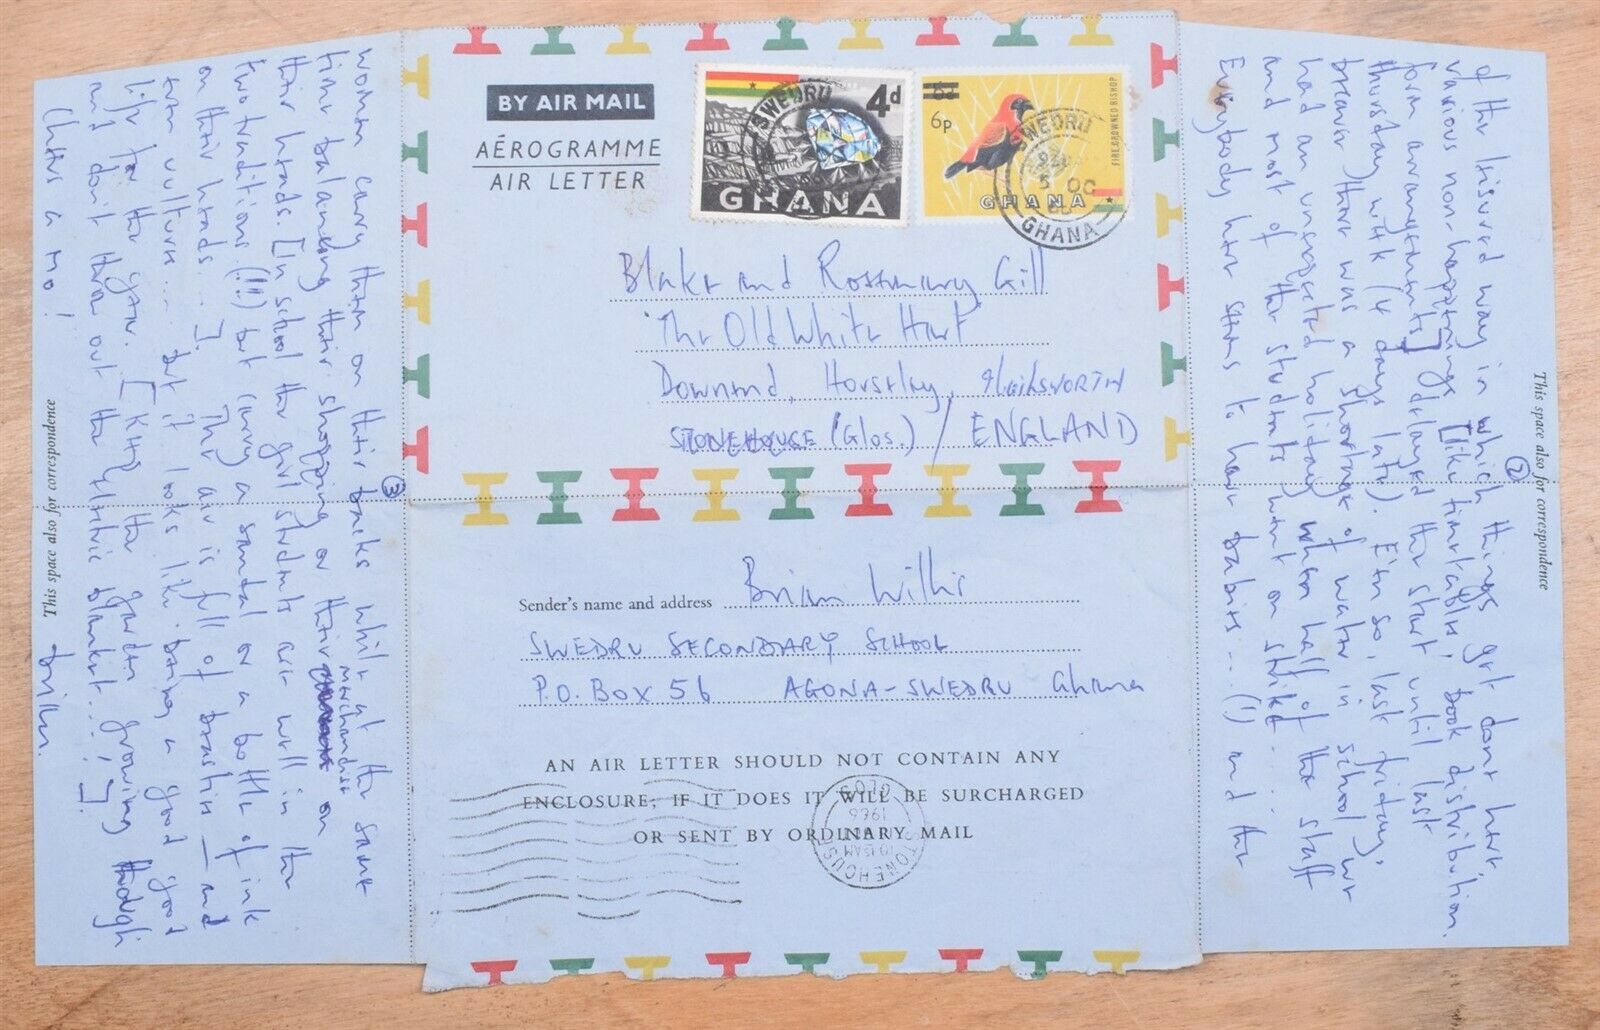 BY AIR MAIL
AÉROGRAMME
AIR LETTER
4d
GHANA
SWEDRU
6p
FIRE CROWNED BISHOP
GHANA
SWEDRU
5 OC
GHANA
Blake and Rosemary Gill
The Old White Hart
Downend, Horsley,
STONEHOUSE (Glos.) / ENGLAND
Sender's name and address Brian Willis
SWEDRU SECONDARY SCHOOL
P.O. BOX 56 AGONA-SWEDRU Ghana
AN AIR LETTER SHOULD NOT CONTAIN ANY
ENCLOSURE; IF IT DOES IT WILL BE SURCHARGED
OR SENT BY ORDINARY MAIL
STONEHOUSE
10 15 AM
1966
GLOS
This space also for correspondence
②
of the leisured way in which things get done here,
various non-happenings [like timetables, book distribution,
form arrangements] delayed the start until last
thursday week (4 days late). Even so, last friday,
because there was a shortage of water in school, we
had an unexpected holiday when half of the staff
and most of the students went on strike...
Everybody here seems to have babies... (1) and the
This space also for correspondence
③
women carry them on their backs whilst at the same
time balancing their shopping or their merchandise on
their heads. [In school the girl students are well in the
two traditions (!!) but carry a sandal or a bottle of ink
on their heads...]. The air is full of beasties — and
even vultures... but it looks like being a good good
life for the year. [Keep the garden growing though
and don't throw out the electric blanket...!]
Cheers a mo! Brian.